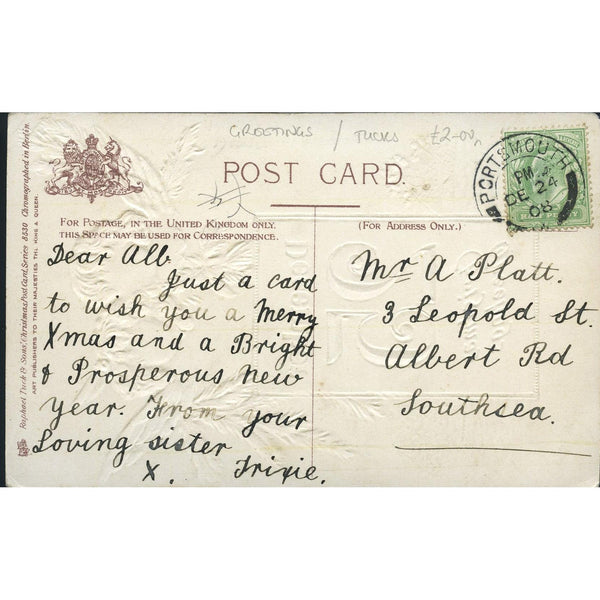 GREETINGS / TUCKS £2-00
POST CARD.
FOR POSTAGE, IN THE UNITED KINGDOM ONLY.
THIS SPACE MAY BE USED FOR CORRESPONDENCE.
(FOR ADDRESS ONLY.)
Raphael Tuck & Sons' Christmas Post Card, Series 8430 Chromographed in Berlin.
ART PUBLISHERS TO THEIR MAJESTIES THE KING & QUEEN.
PORTSMOUTH
PM
DE 24
08
Dear Alb
Just a card
to wish you a Merry
Xmas and a Bright
& Prosperous New
Year. From your
Loving sister
X. Trixie.
Mr A Platt.
3 Leopold St.
Albert Rd
Southsea.